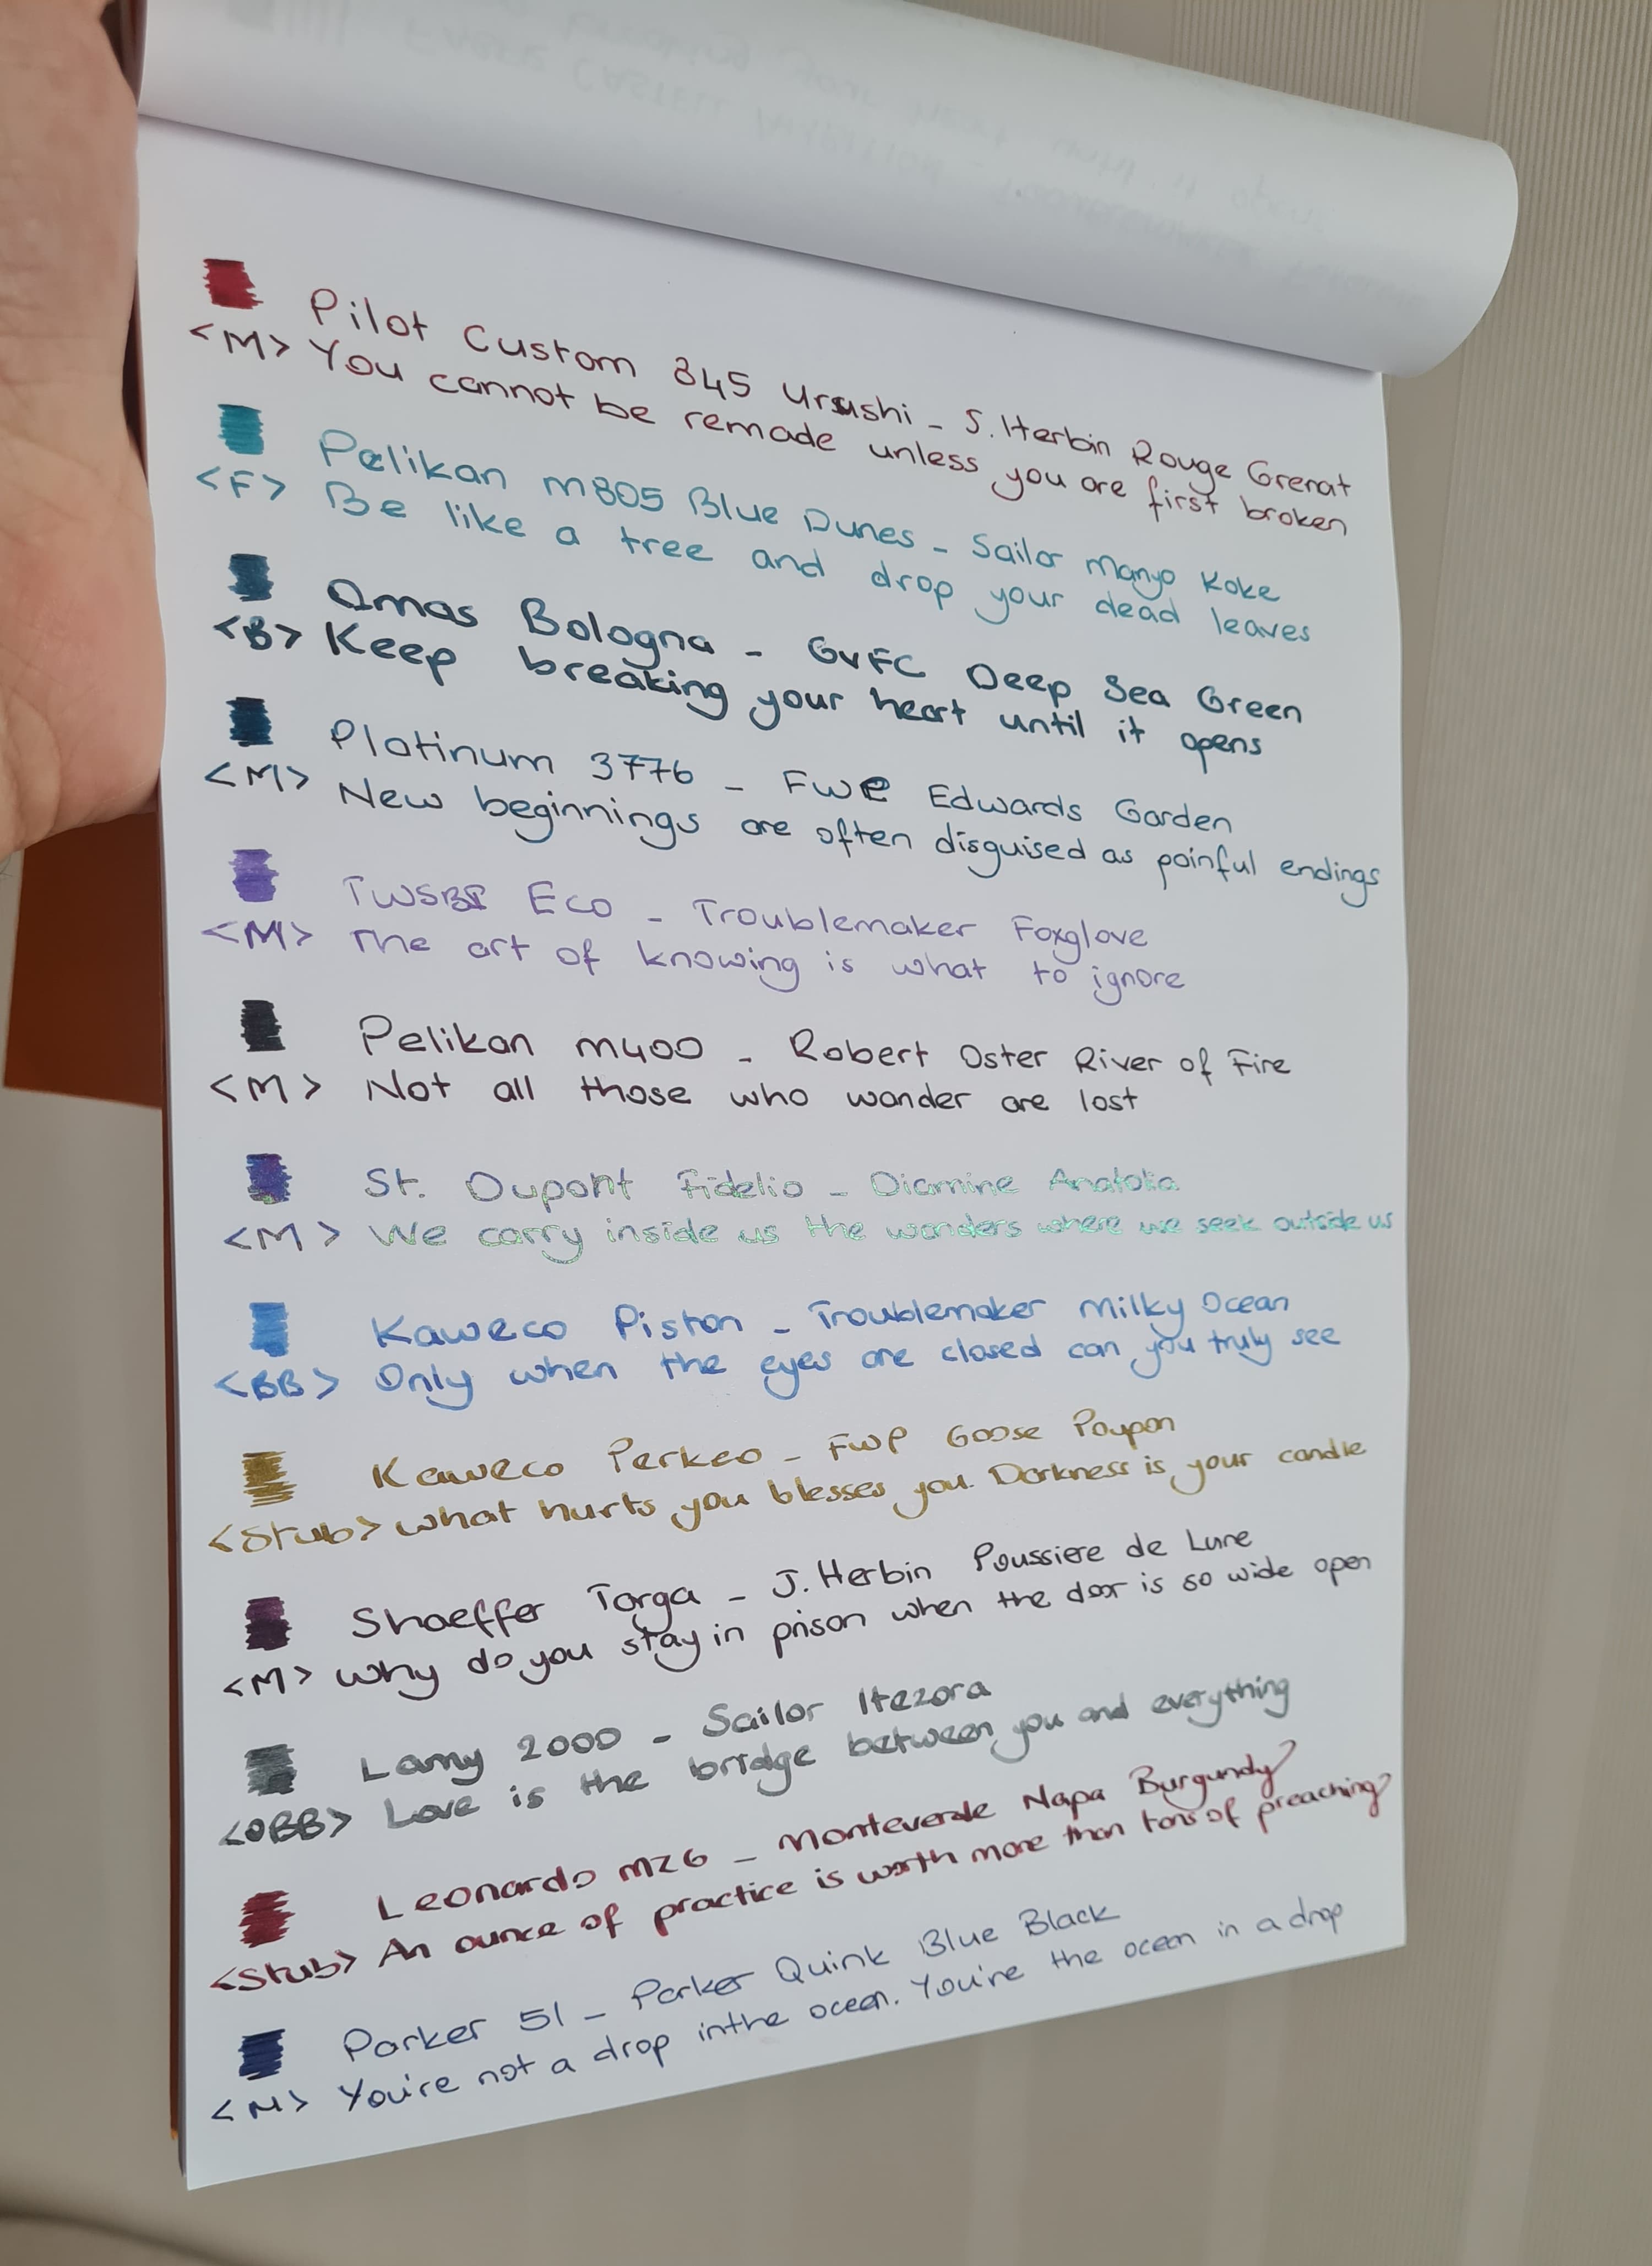 Pilot Custom 845 Urushi - J. Herbin Rouge Grenat
<M> You cannot be remade unless you are first broken
Pelikan M805 Blue Dunes - Sailor Manyo Koke
<F> Be like a tree and drop your dead leaves
Omas Bologna - GvFC Deep Sea Green
<B> Keep breaking your heart until it opens
Platinum 3776 - FWP Edwards Garden
<M> New beginnings are often disguised as painful endings
TWSBI Eco - Troublemaker Foxglove
<M> The art of knowing is what to ignore
Pelikan M400 - Robert Oster River of Fire
<M> Not all those who wander are lost
St. Dupont Fidelio - Diamine Anatolia
<M> We carry inside us the wonders where we seek outside us
Kaweco Piston - Troublemaker Milky Ocean
<BB> Only when the eyes are closed can you truly see
Kaweco Perkeo - FWP Goose Poupon
<Stub> What hurts you blesses you. Darkness is your candle
Shaeffer Targa - J. Herbin Poussiere de Lune
<M> Why do you stay in prison when the door is so wide open
Lamy 2000 - Sailor Itezora
<OBB> Love is the bridge between you and everything
Leonardo MZG - Monteverde Napa Burgundy
<Stub> An ounce of practice is worth more than tons of preaching
Parker 51 - Parker Quink Blue Black
<M> You're not a drop in the ocean. You're the ocean in a drop